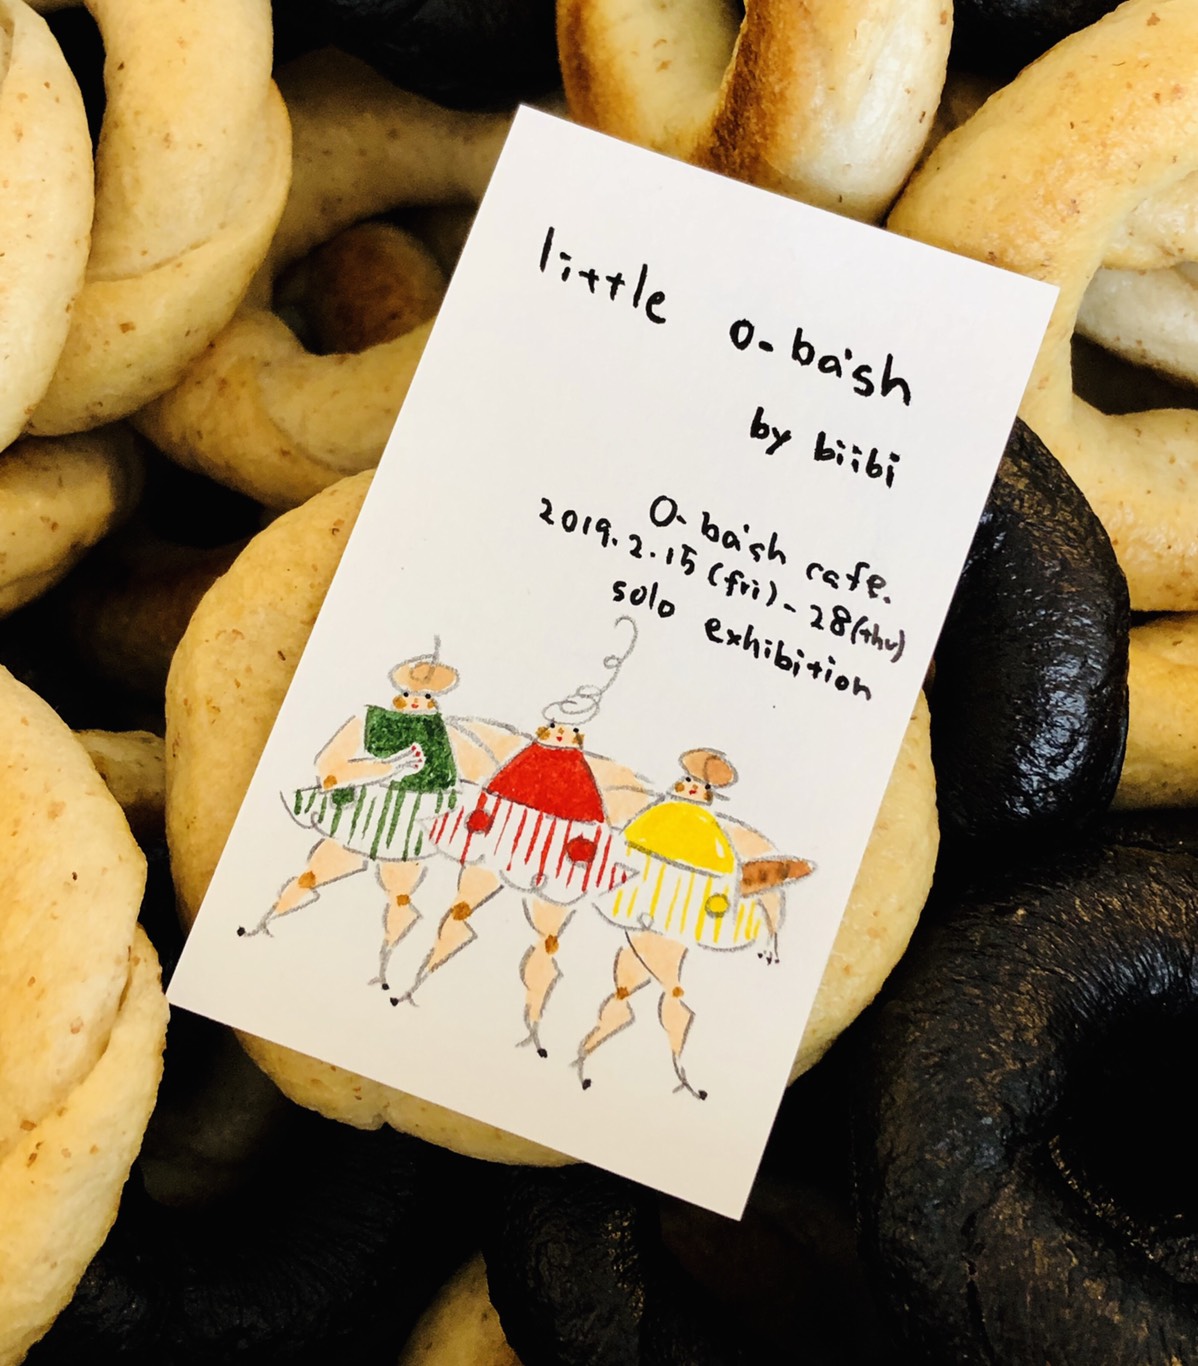 little o-ba'sh
by biibi
O-ba'sh cafe.
2019.2.15 (fri) - 28 (thu)
solo exhibition